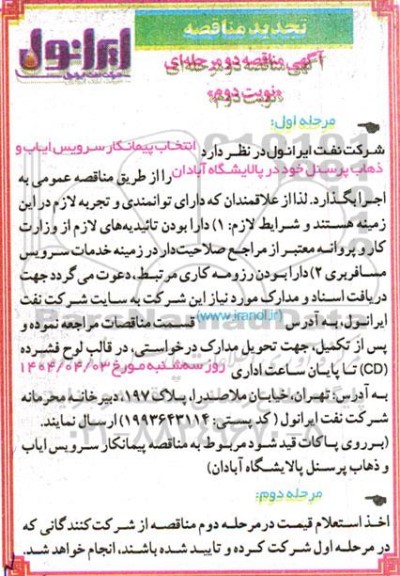 تجدید مناقصه
ایرانول
شرکت نفت ایرانول
آگهی مناقصه دو مرحله‌ای
«نوبت دوم»
مرحله اول:
شرکت نفت ایرانول در نظر دارد انتخاب پیمانکار سرویس ایاب و
ذهاب پرسنل خود در پالایشگاه آبادان را از طریق مناقصه عمومی به
اجرا بگذارد. لذا از علاقمندان که دارای توانمندی و تجربه لازم در این
زمینه هستند و شرایط لازم: ۱) دارا بودن تائیدیه‌های لازم از وزارت
کار و پروانه معتبر از مراجع صلاحیت‌دار در زمینه خدمات سرویس
مسافربری ۲) دارا بودن رزومه کاری مرتبط، دعوت می‌گردد جهت
دریافت اسناد و مدارک مورد نیاز این شرکت به سایت شرکت نفت
ایرانول، به آدرس (www.iranol.ir) قسمت مناقصات مراجعه نموده و
پس از تکمیل، جهت تحویل مدارک درخواستی، در قالب لوح فشرده
(CD) تا پایان ساعت اداری روز سه‌شنبه مورخ ۱۴۰۴/۰۴/۰۳
به آدرس: تهران، خیابان ملاصدرا، پلاک ۱۹۷، دبیرخانه محرمانه
شرکت نفت ایرانول (کد پستی: ۱۹۹۳۶۴۳۱۱۴) ارسال نمایند.
(بر روی پاکات قید شود مربوط به مناقصه پیمانکار سرویس ایاب
و ذهاب پرسنل پالایشگاه آبادان)
مرحله دوم:
اخذ استعلام قیمت در مرحله دوم مناقصه از شرکت‌کنندگانی که
در مرحله اول شرکت کرده و تایید شده باشند، انجام خواهد شد.